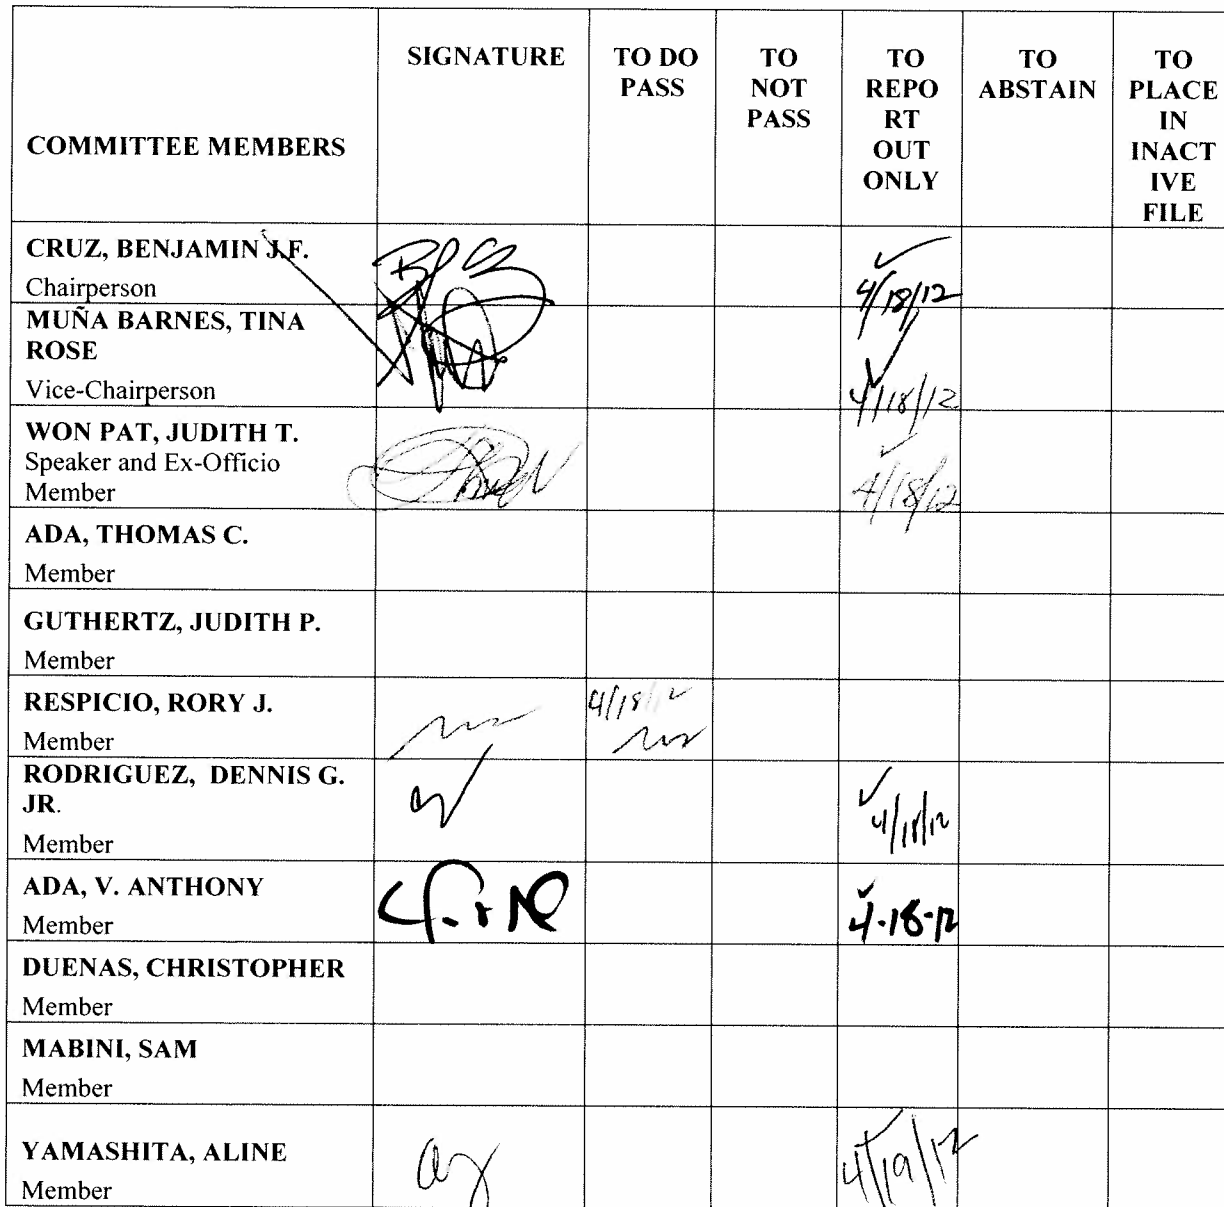 COMMITTEE MEMBERS
SIGNATURE
TO DO
PASS
TO
NOT
PASS
TO
REPO
RT
OUT
ONLY
TO
ABSTAIN
TO
PLACE
IN
INACT
IVE
FILE
CRUZ, BENJAMIN J.F.
Chairperson
✓
4/18/12
MUÑA BARNES, TINA
ROSE
Vice-Chairperson
✓
4/18/12
WON PAT, JUDITH T.
Speaker and Ex-Officio
Member
✓
4/18/12
ADA, THOMAS C.
Member
GUTHERTZ, JUDITH P.
Member
RESPICIO, RORY J.
Member
4/18/12
RODRIGUEZ, DENNIS G.
JR.
Member
✓
4/18/12
ADA, V. ANTHONY
Member
✓
4-18-12
DUENAS, CHRISTOPHER
Member
MABINI, SAM
Member
YAMASHITA, ALINE
Member
✓
4/19/12